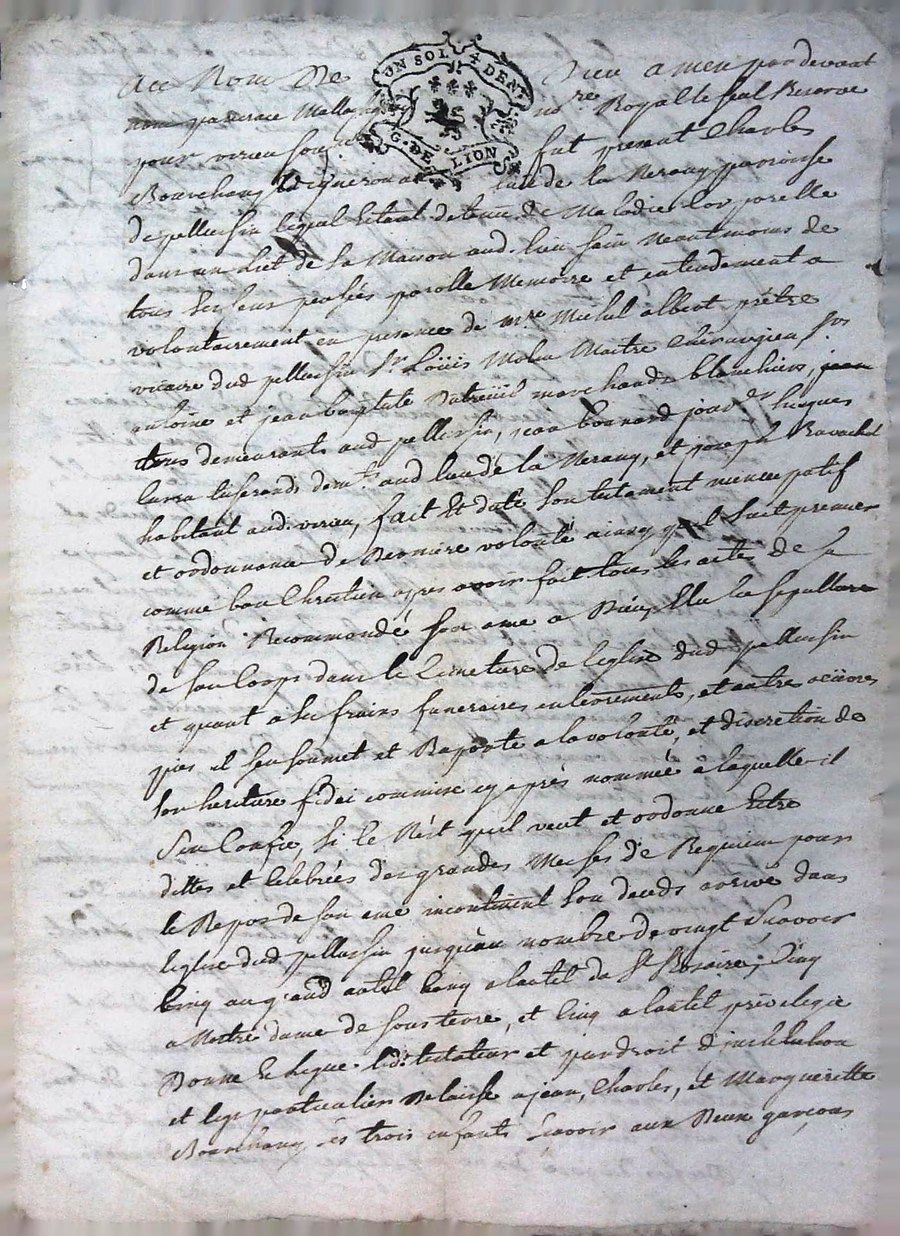 UN SOL 4 DEN.
G. DE LION
Au Nom De Dieu amen pardevant
nous pancrace Mallassagny no.re Royal le seul Reservé
pour virieu soussigné fut present Charles
Bourchany vigneron du lieu de la Nerany paroisse
de pellussin lequel Etant detenu de Maladie Corporelle
dans un Lict de sa Maison aud. lieu sain neantmoins de
tous ses sens pensées parolle Memoire et entendement a
volontairement en presence de m.re Michel albert prêtre
vicaire dud pellussin S.r Loüis Molin Maitre Chirurgien S.rs
antoine et jean baptiste Dutreüil marchands blanchiers,
tous demeurants aud pellussin, jean bonnard
tisserands dem.t aud lieu de la Nerany, et joseph Ravachol
habitant aud virieu, fait Et dicté son testament nuncupatif
et ordonnance de Derniere volonté ainsy quil suit premier
comme bon Chretien appres avoir fait tous les actes de sa
Religion Recommandé son ame a Dieu, Ellu la sepulture
de son Corps dans le Cimetiere de l'eglise dud pellussin
et quant a ses frais funeraires enterrements, et autre oeüvres
pies il s'en soumet et Raporte a la volonté, et discretion de
son heritiere fidei commise cy après nommée a laquelle il
s'en Confie, si ce N'est quil veut et ordonne Estre
dittes et Celebrées des grandes Messes de Requiem pour
le Repos de son ame incontinent son deceds arrivé dans
l'eglise dud pellussin jusqu'au nombre de vingt Scavoir
Cinq au grand autel Cinq a l'autel du S.t Rosaire; Cinq
a Nottre dame de sous terre, et Cinq a l'autel privilegié
Donne Et legue led. testateur et par droit d'institution
et legs particuliers Delaisse a jean, Charles, et Margueritte
Bourchany ses trois enfants Scavoir aux Deux garçons